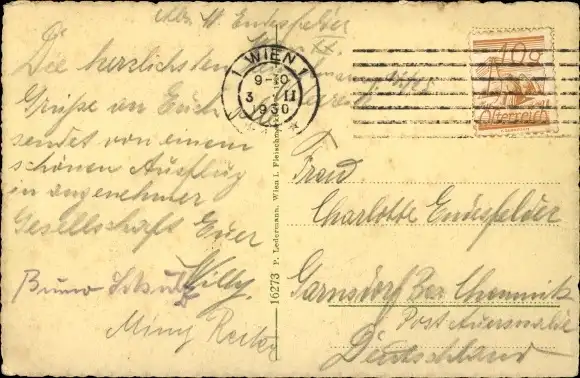 W. Endesfelder
Wien XX.
Die herzlichsten
Grüße an Euch
sendet von einem
schönen Ausflug
in angenehmer
Gesellschaft Euer
Willy.
Bruno
Miny Reiter
16273 P. Ledermann, Wien I. Fleischm
1 WIEN 1
9-10
3 II
1930
10g
Österreich
Frau
Charlotte Endesfelder
Garnsdorf Bez Chemnitz
Post Auerswalde
Deutschland